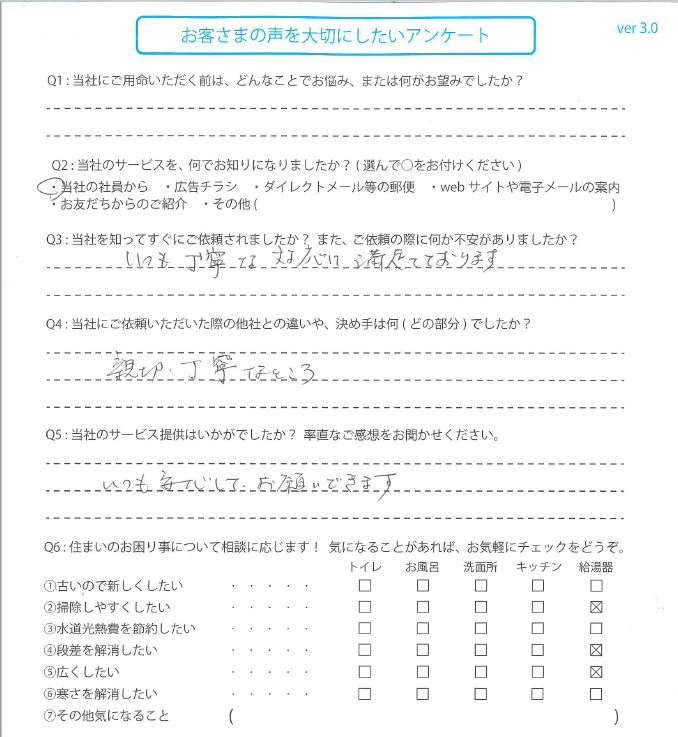 お客さまの声を大切にしたいアンケート
ver 3.0
Q1 : 当社にご用命いただく前は、どんなことでお悩み、または何がお望みでしたか？
Q2 : 当社のサービスを、何でお知りになりましたか？ ( 選んで○をお付けください )
・当社の社員から ・広告チラシ ・ダイレクトメール等の郵便 ・web サイトや電子メールの案内
・お友だちからのご紹介 ・その他 ( )
Q3 : 当社を知ってすぐにご依頼されましたか？ また、ご依頼の際に何か不安がありましたか？
いつも丁寧な対応に満足しております
Q4 : 当社にご依頼いただいた際の他社との違いや、決め手は何 ( どの部分 ) でしたか？
親切・丁寧なところ
Q5 : 当社のサービス提供はいかがでしたか？ 率直なご感想をお聞かせください。
いつも安心して お願いできます
Q6 : 住まいのお困り事について相談に応じます！ 気になることがあれば、お気軽にチェックをどうぞ。
トイレ お風呂 洗面所 キッチン 給湯器
①古いので新しくしたい ・・・・・ □ □ □ □ □
②掃除しやすくしたい ・・・・・ □ □ □ □ ☒
③水道光熱費を節約したい ・・・・・ □ □ □ □ □
④段差を解消したい ・・・・・ □ □ □ □ ☒
⑤広くしたい ・・・・・ □ □ □ □ ☒
⑥寒さを解消したい ・・・・・ □ □ □ □ □
⑦その他気になること ( )